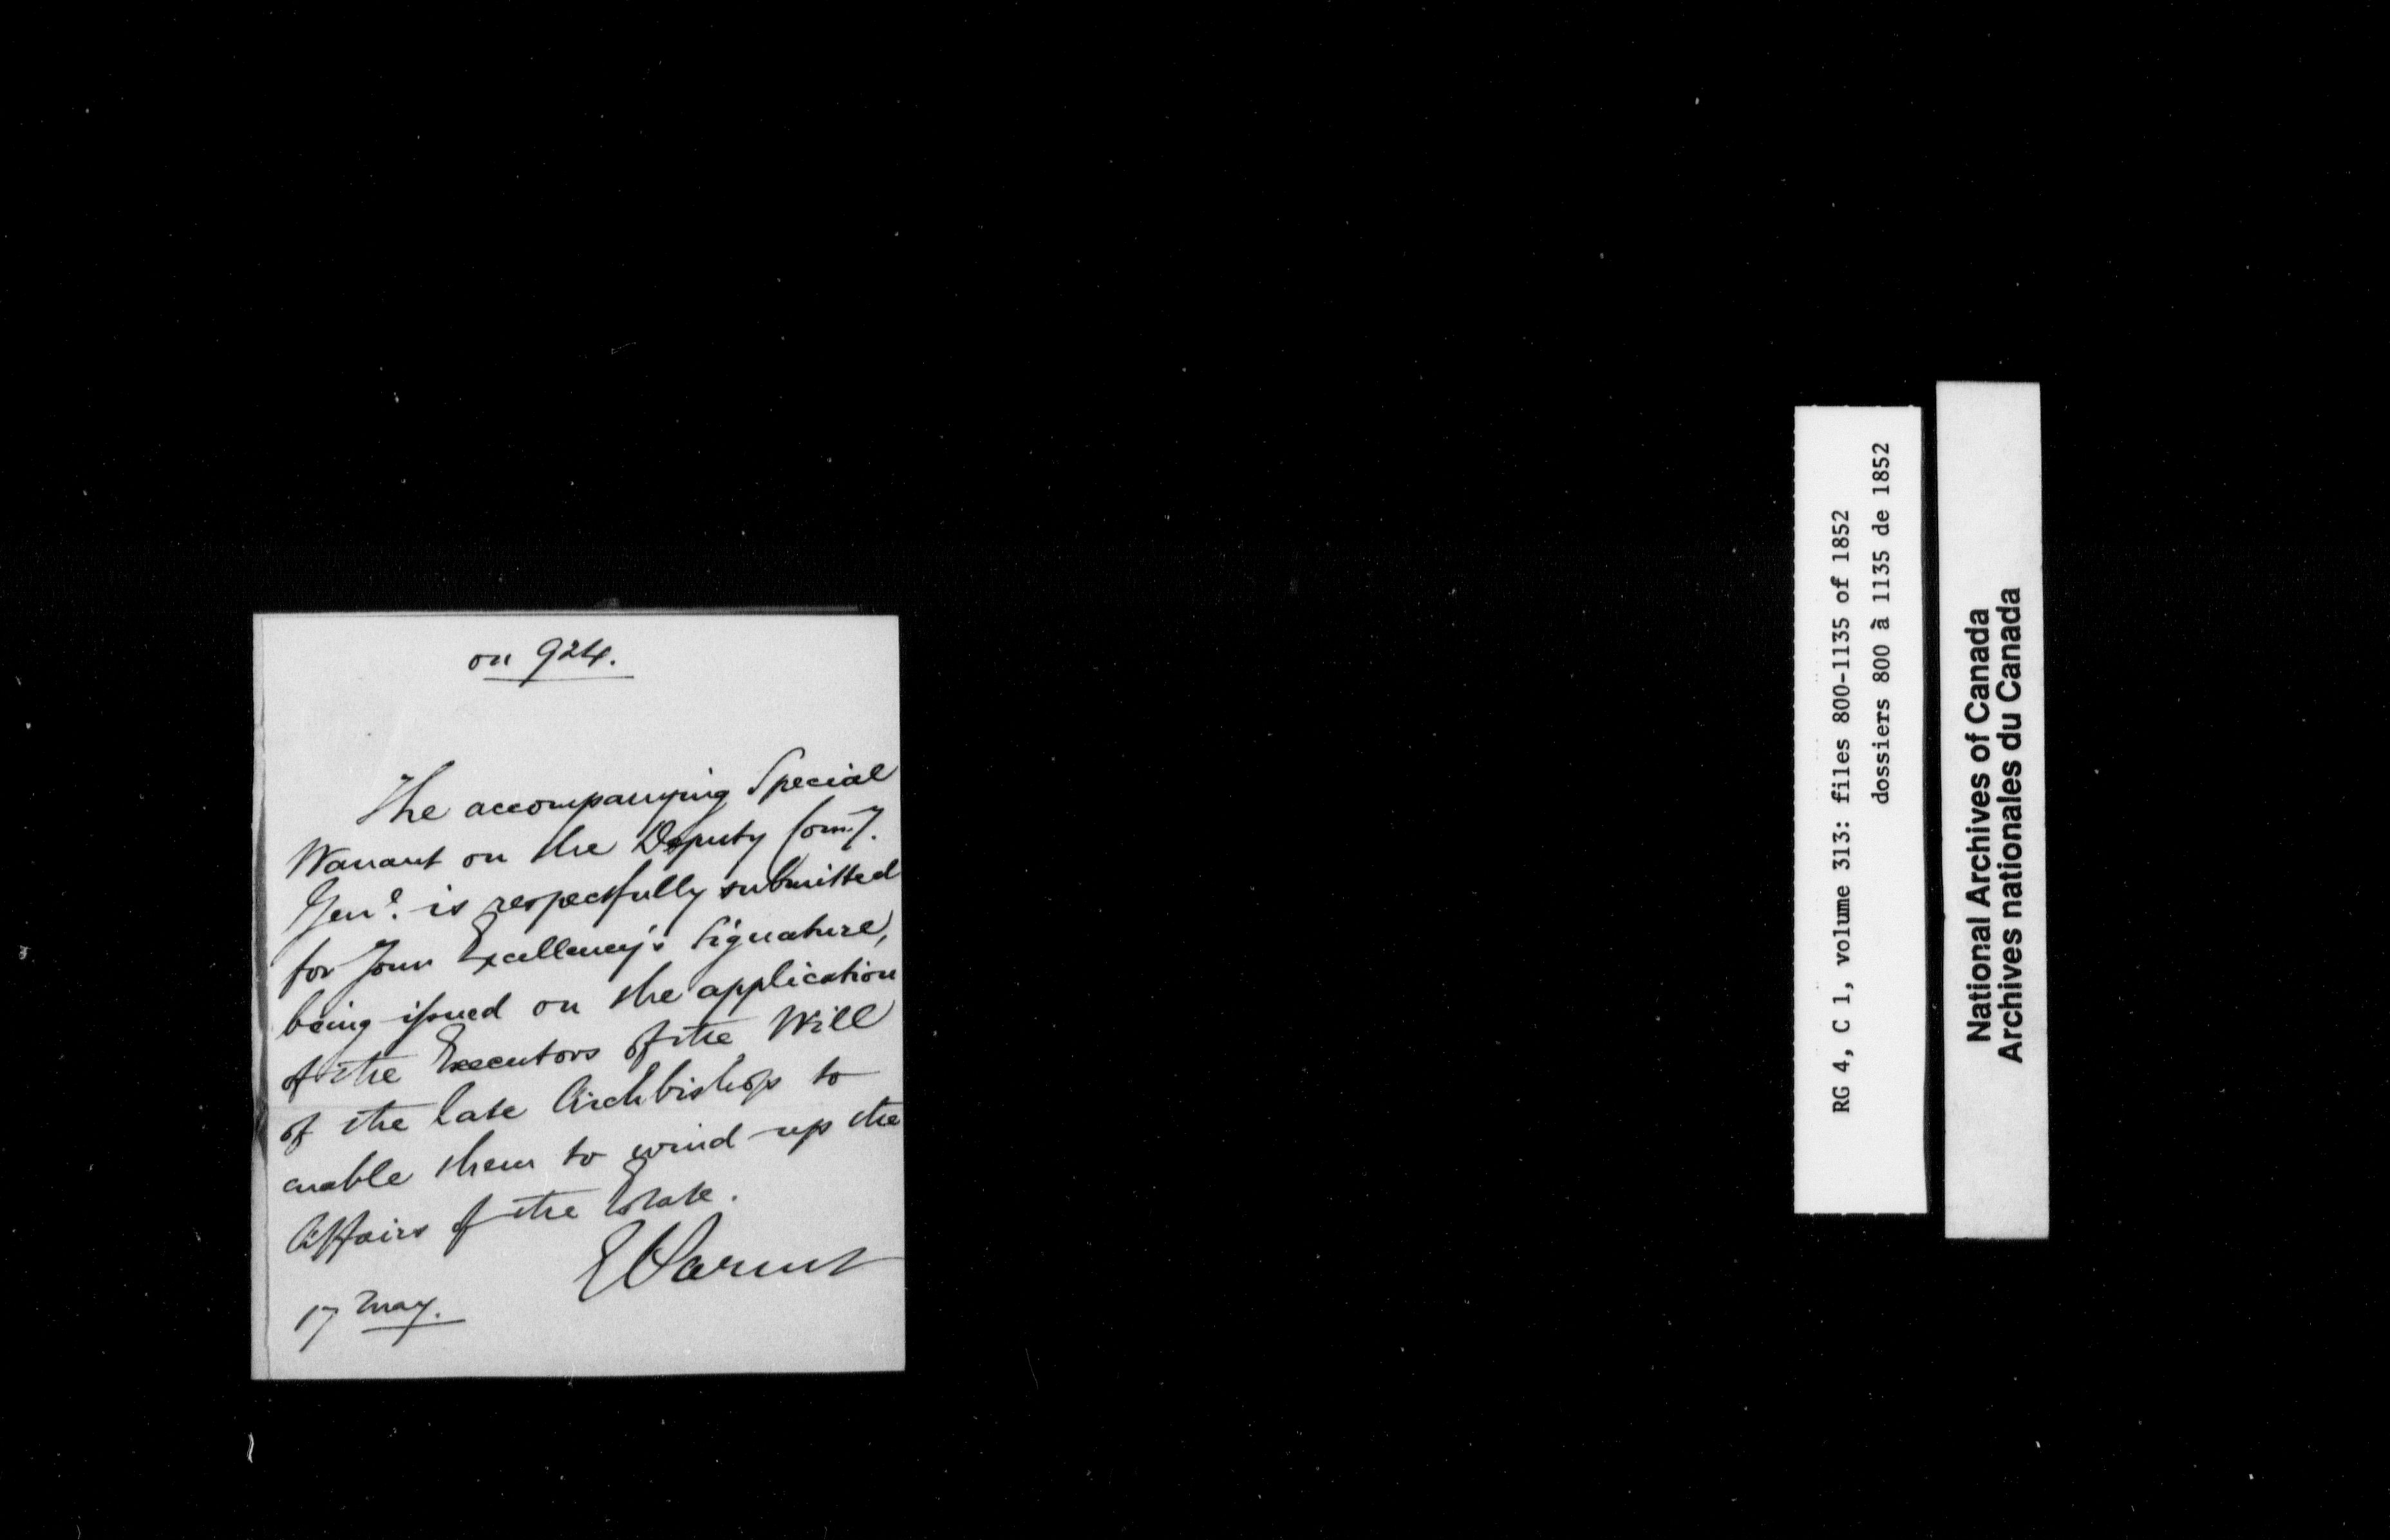 on 924.
The accompanying Special
Warrant on the Deputy Comy.
Genl. is respectfully submitted
for Your Excellency's Signature,
being issued on the application
of the Executors of the Will
of the late Archbishop to
enable them to wind up the
Affairs of the Estate.
E Parent
17 May.
RG 4, C 1, volume 313: files 800-1135 of 1852
dossiers 800 à 1135 de 1852
National Archives of Canada
Archives nationales du Canada